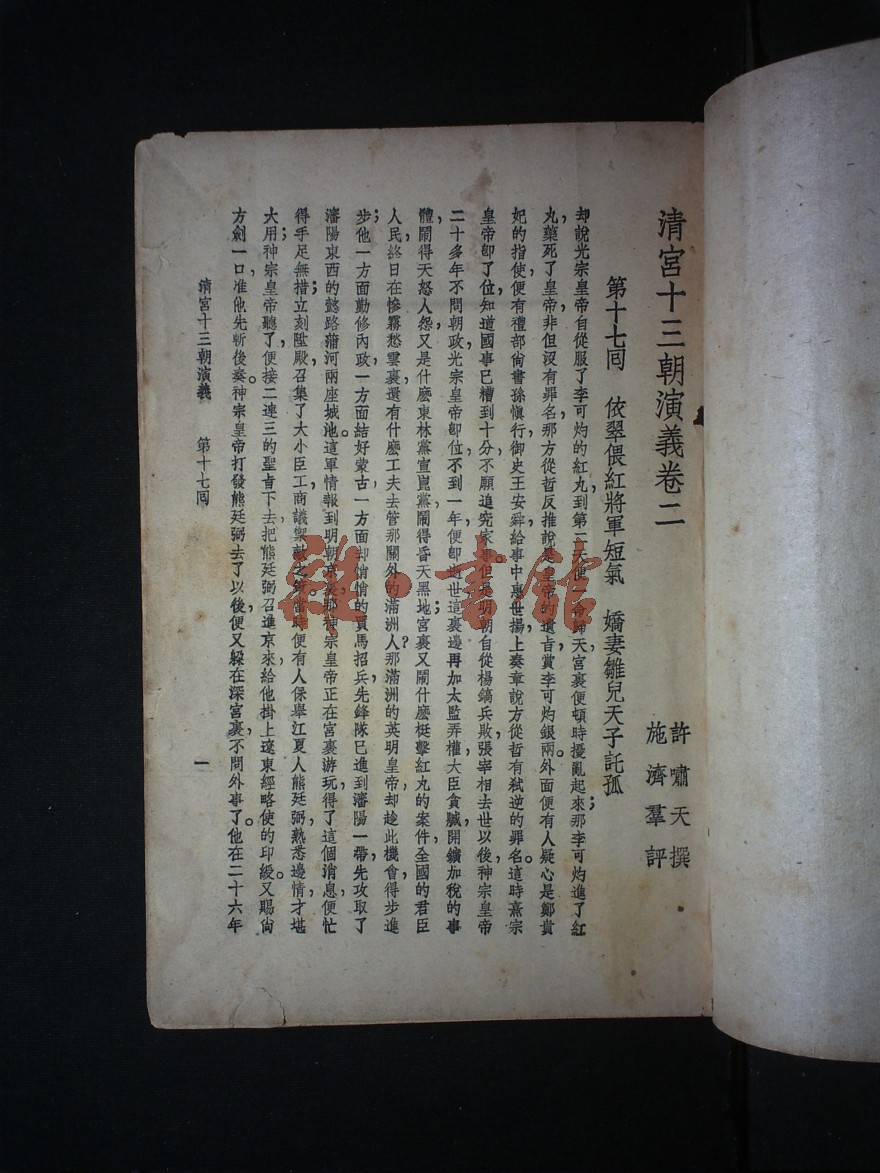 清宮十三朝演義卷二
許嘯天撰
施濟羣評
第十七囘　依翠偎紅將軍短氣　嬌妻雛兒天子託孤
却說光宗皇帝自從服了李可灼的紅丸，到第二天便一命歸天宮裏便頓時擾亂起來；那李可灼進了紅
丸，藥死了皇帝，非但沒有罪名，那方從哲反推說是皇帝的遺旨，賞李可灼銀兩。外面便有人疑心是鄭貴
妃的指使，便有禮部尙書孫愼行，御史王安舜，給事中惠世揚，上奏章說方從哲有弒逆的罪名。這時熹宗
皇帝卽了位，知道國事已糟到十分，不願追究家事。但是明朝自從楊鎬兵敗，張宰相去世以後，神宗皇帝
二十多年不問朝政，光宗皇帝卽位，不到一年，便卽逝世，這裏邊再加太監弄權，大臣貪贓，開鑛加稅的事
體，鬧得天怒人怨，又是什麽東林黨宣崑黨，鬧得昏天黑地；宮裏又鬧什麽梃擊紅丸的案件，全國的君臣
人民，終日在慘霧愁雲裏，還有什麽工夫去管那關外的滿洲人？那滿洲的英明皇帝，却趁此機會，得步進
步；他一方面勤修內政，一方面結好蒙古，一方面却悄悄的買馬招兵，先鋒隊已進到瀋陽一帶，先攻取了
瀋陽東西的懿路蒲河兩座城池。這軍情報到明朝京裏，那神宗皇帝正在宮裏游玩，得了這個消息，便忙
得手足無措；立刻陞殿，召集了大小臣工，商議禦敵之策，當時便有人保舉江夏人熊廷弼，熟悉邊情，才堪
大用；神宗皇帝聽了，便接二連三的聖旨下去，把熊廷弼召進京來，給他掛上遼東經略使的印綬。又賜尙
方劍一口，准他先斬後奏。神宗皇帝打發熊廷弼去了以後，便又躱在深宮裏，不問外事了。他在二十六年
清宮十三朝演義　第十七囘　一
雜·書館